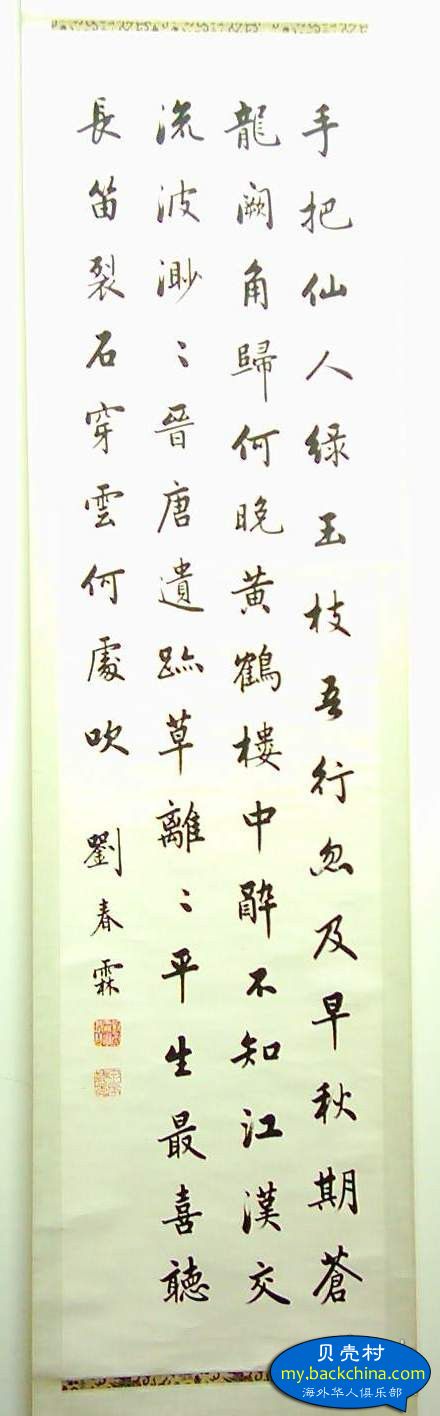 手把仙人緑玉枝吾行忽及早秋期蒼
龍闕角歸何晚黄鶴樓中醉不知江漢交
流波渺〻晉唐遺跡草離〻平生最喜聽
長笛裂石穿雲何處吹 劉春霖
贝壳村
my.backchina.com
海外华人俱乐部